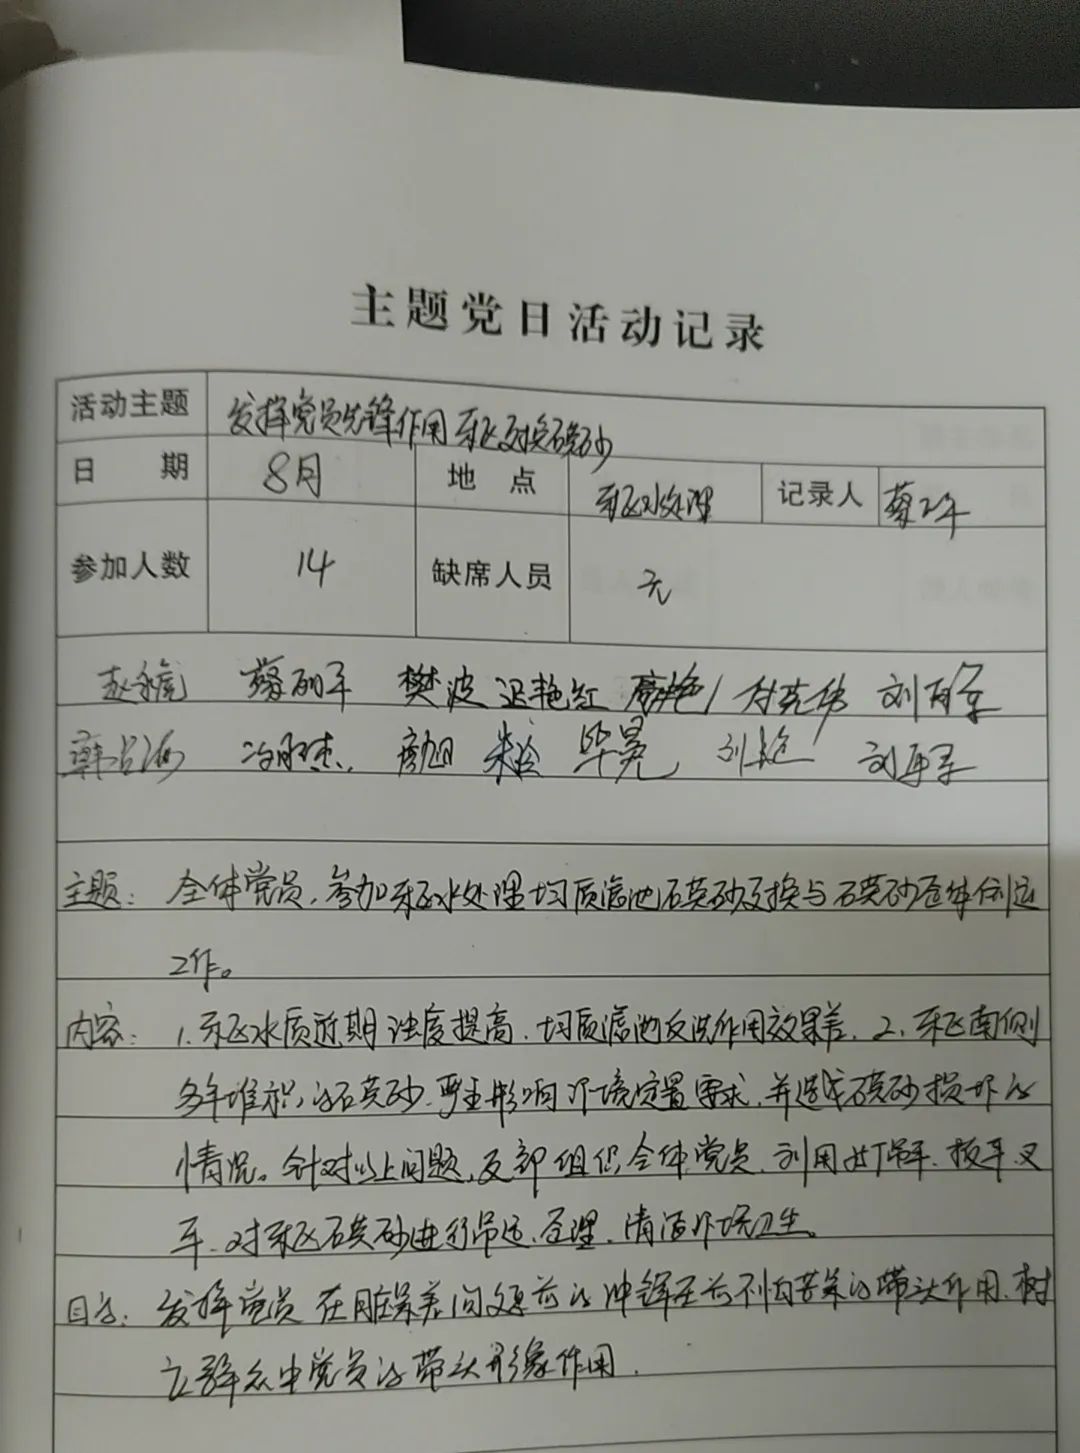 主题党日活动记录
活动主题 发挥党员先锋作用 东区更换石英砂
日期 8月 地点 东区水处理 记录人 蔡
参加人数 14 缺席人员 无
樊波 迟艳红 付克伟 刘百军
毕冕 刘艳 刘军军
主题：全体党员，参加东区水处理均质滤池石英砂更换与石英砂吞体倒运
工作。
内容：1.东区水质近期浊度提高，均质滤池反洗作用效果差，2.东区南侧
多年堆积的石英砂，严重影响环境定置要求，并造成石英砂损坏的
情况。针对以上问题，支部组织全体党员，利用吊车、板车、叉
车、对东区石英砂进行吊运、整理、清洁环境卫生。
目的：发挥党员在脏累差问题前的冲锋在前不怕苦累的带头作用，树
立群众中党员的带头形象作用．